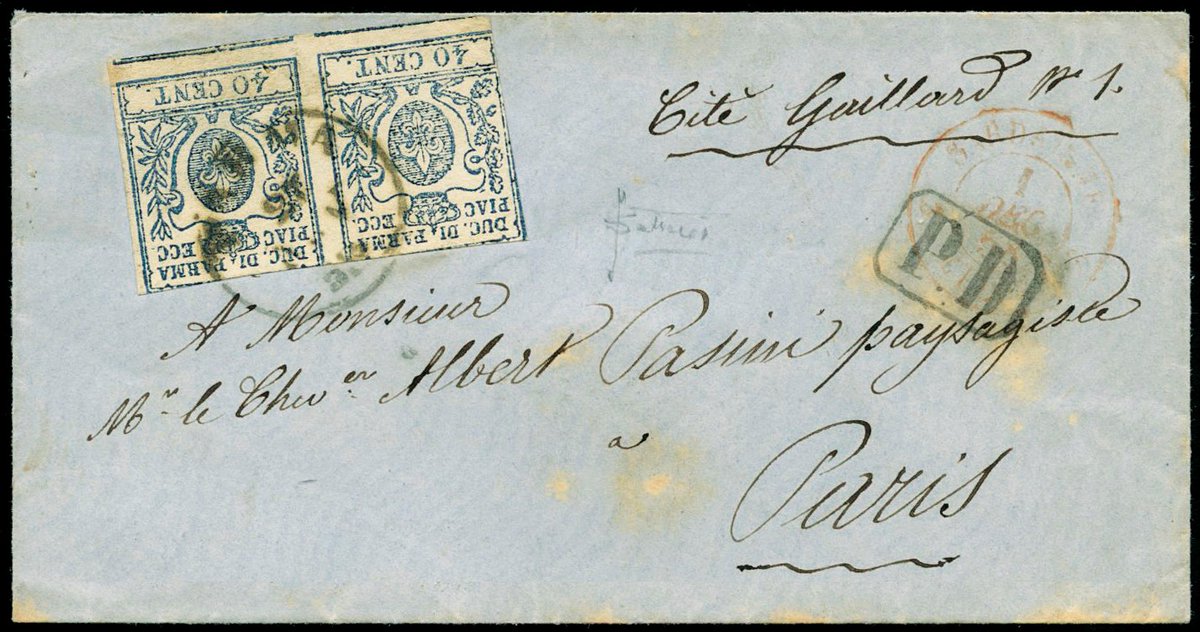 40 CENT.
DUC. DI PARMA
PIAC ECC.
40 CENT.
DUC. DI PARMA
PIAC ECC.
Cité Gaillard N° 1.
1
DEC
P.D
A Monsieur
Mr. le Chev.er Albert Pasini paysagiste
a
Paris